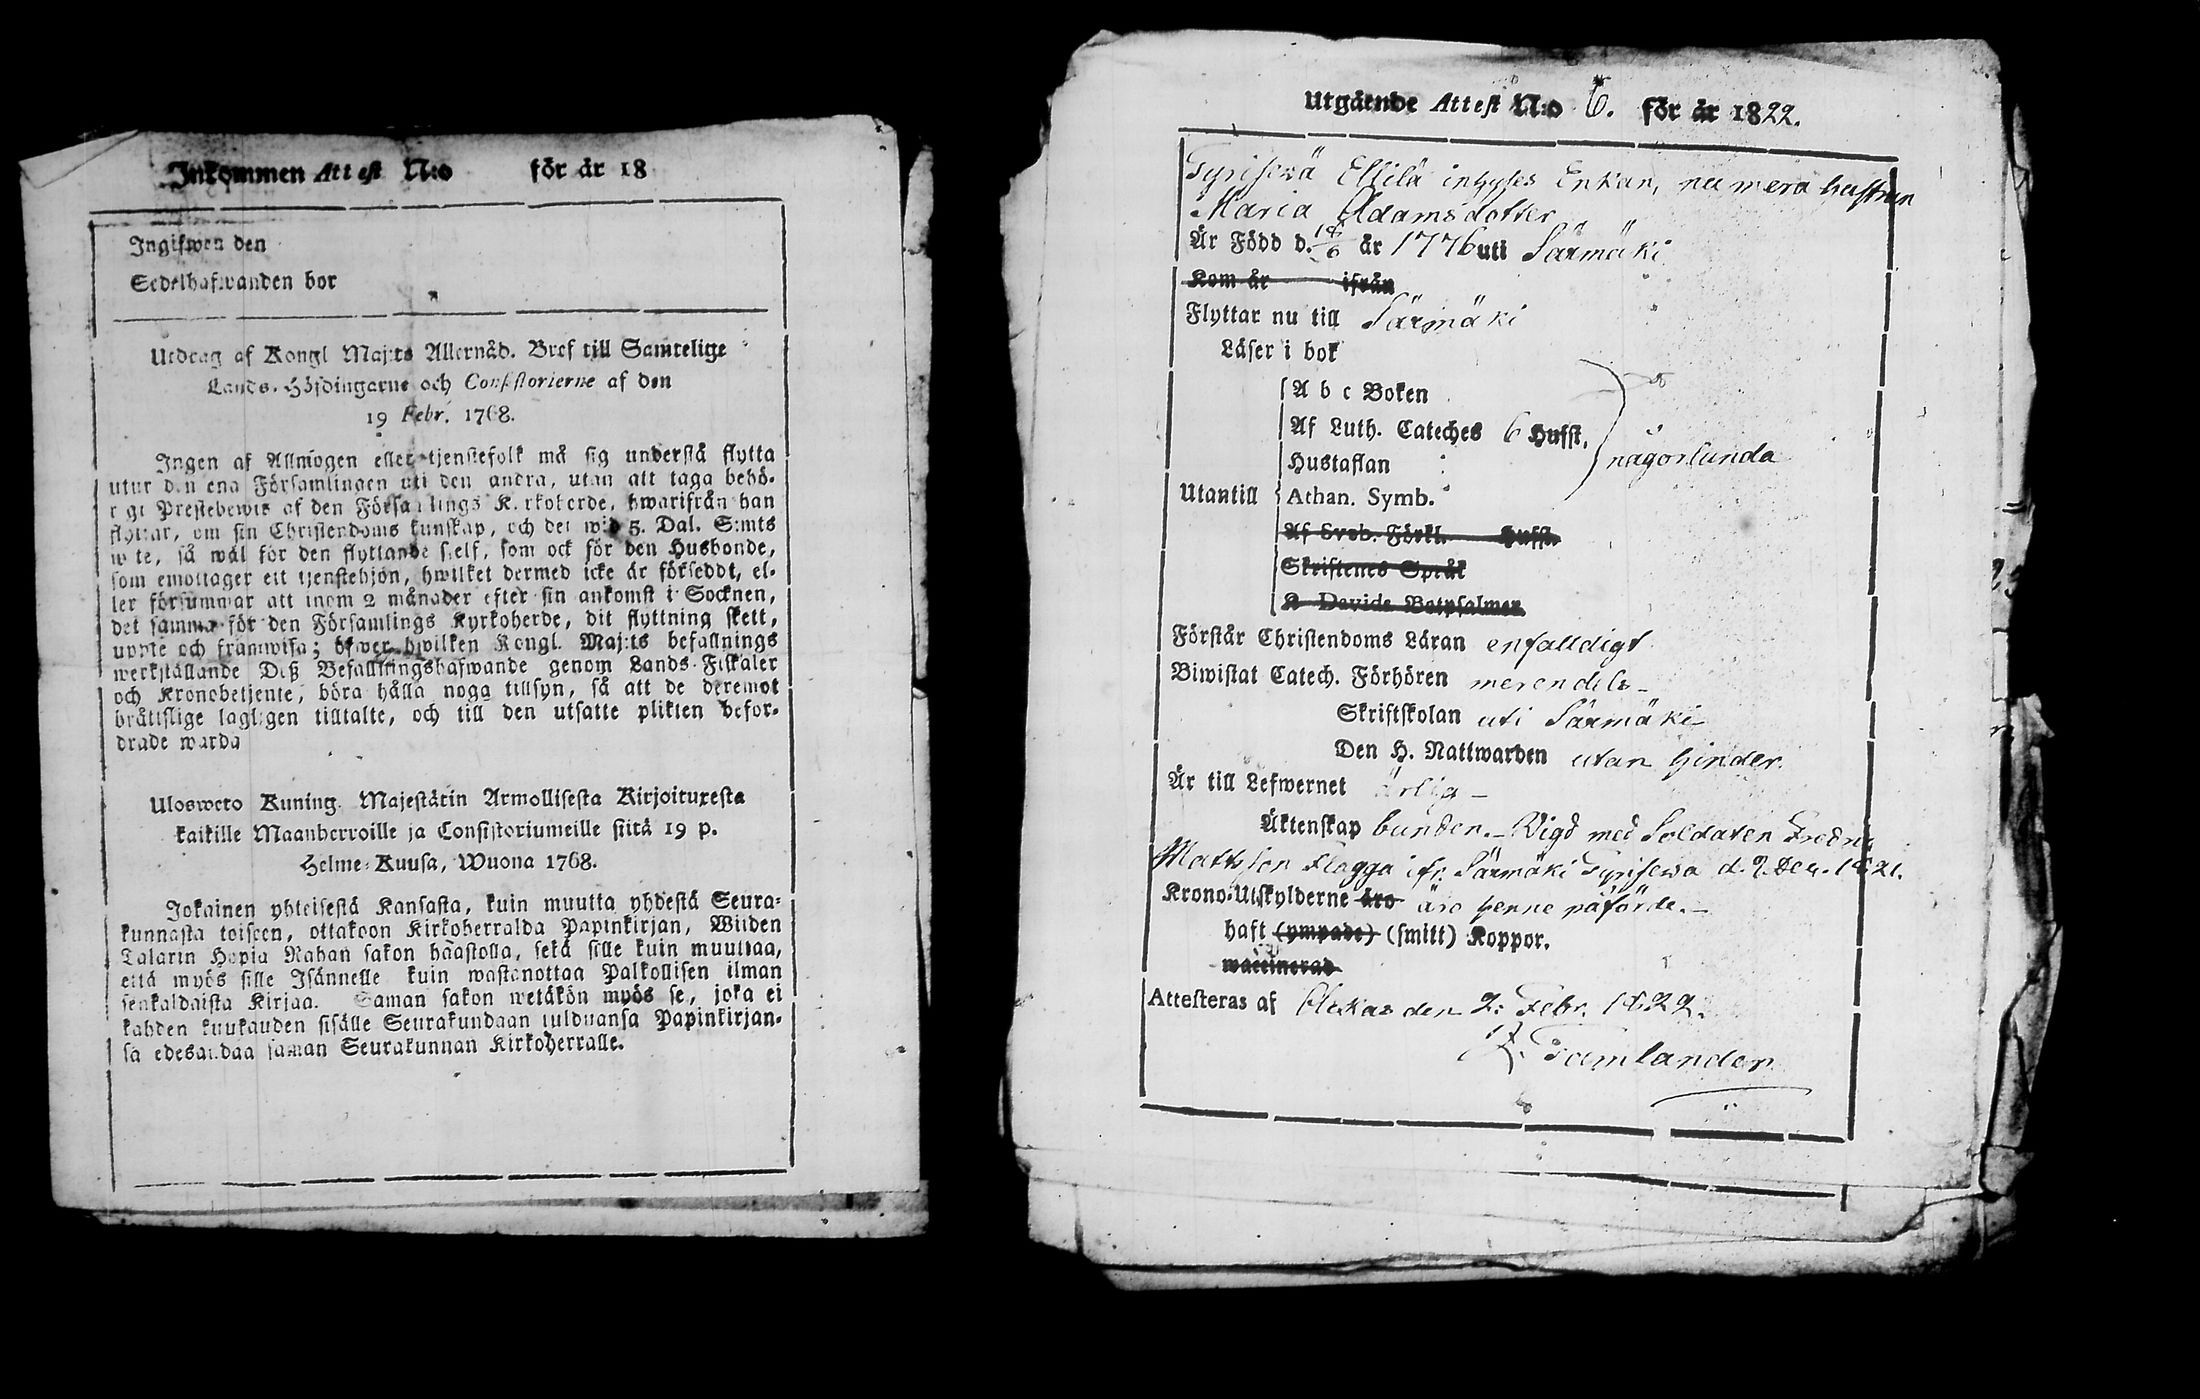 Inkommen Attest N:o för år 18
Ingifwen den
Sedelhafwanden bor
Utdrag af Kongl Maj:ts Allernåd. Bref till Samtelige
Lands-Höfdingarne och Consistorierne af den
19 Febr. 1768.
Ingen af Allmogen eller tjenstefolk må sig understå flytta
utur den ena Församlingen uti den andra, utan att taga behö-
rigt Prestebewis af den Församlings Kyrkoherde, hwarifrån han
flyttar, om sin Christendoms kunskap, och det wid 5. Dal. S:mts
wite, så wäl för den flyttande sjelf, som ock för den Husbonde,
som emottager ett tjenstehjon, hwilket dermed icke är försedt, el-
ler försummar att inom 2 månader efter sin ankomst i Socknen,
det samma för den Församlings Kyrkoherde, dit flyttning skett,
uppte och framwisa; öfwer hwilken Kongl. Maj:ts befallnings
werkställande Deß Befallningshafwande genom Lands-Fiskaler
och Kronobetjente, böra hålla noga tillsyn, så att de deremot
bråttslige lagligen tilltalte, och till den utsatte plikten befor-
drade warda
Uloswето Kuning. Majestätin Armollisesta Kirjoituxesta
kaikille Maanherroille ja Consistoriumeille siitä 19 p.
Helme-Kuusa, Wuona 1768.
Jokainen yhteisestä Kansasta, kuin muutta yhdestä Seura-
kunnasta toiseen, ottakoon Kirkoherralda Papinkirjan, Wiiden
Talarin Hopia Rahan sakon haastolla, sekä sille kuin muuttaa,
että myös sille Isännelle kuin wastanottaa Palkollisen ilman
senkaldaista Kirjaa. Saman sakon wetäkön myös se, joka ei
kahden kuukauden sisälle Seurakundaan tulduansa Papinkirjan-
sa edesandaa saman Seurakunnan Kirkoherralle.
Utgående Attest N:o 6. för år 1822.
Tyrisewä Ellilä inhyses Enkan, nu mera hustrun
Maria Adamsdotter
Är Född d. 18/6 år 1776 uti Särmäki
Kom år ifrån
Flyttar nu till Särmäki
Läser i bok
A b c Boken
Af Luth. Cateches 6 Hufst.
Hustaflan någorlunda
Utantill Athan. Symb.
Af Sveb. Förkl. Hufst.
Skriftenes Språk
K Davids Botpsalmer
Förstår Christendoms Läran enfalldigt
Biwistat Catech. Förhören merendels
Skriftskolan uti Särmäki
Den H. Nattwarden utan hinder.
Är till Lefwernet ärlig
Äktenskap bunden. Wigd med Soldaten Fredric
Mattsson Flagga ifr. Särmäki Tyrisewa d. 2 Dec. 1821.
Krono-Utskylderne äro äro henne påförde.
haft (ympade) (smitt) Koppor.
waccinerad
Attesteras af den 2: Febr. 1822.
Tamlander